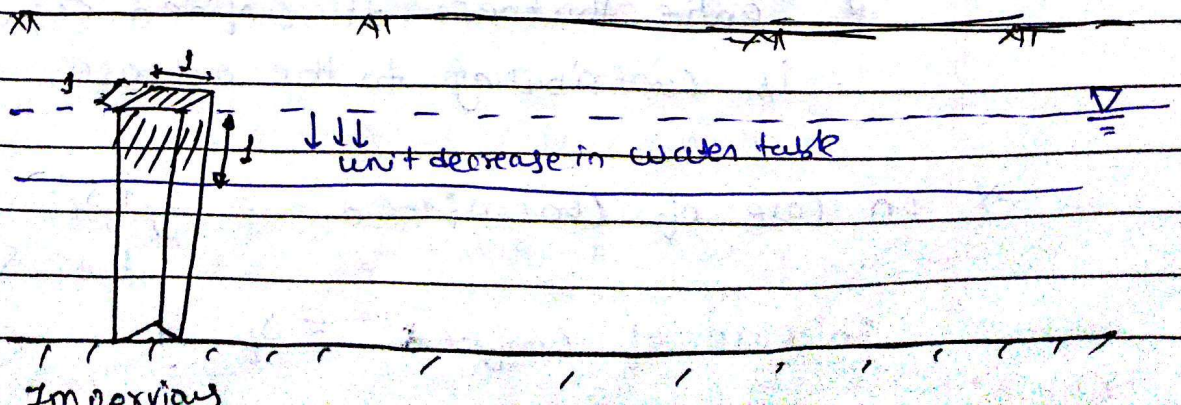 1
1
1
unit decrease in water table
Impervious